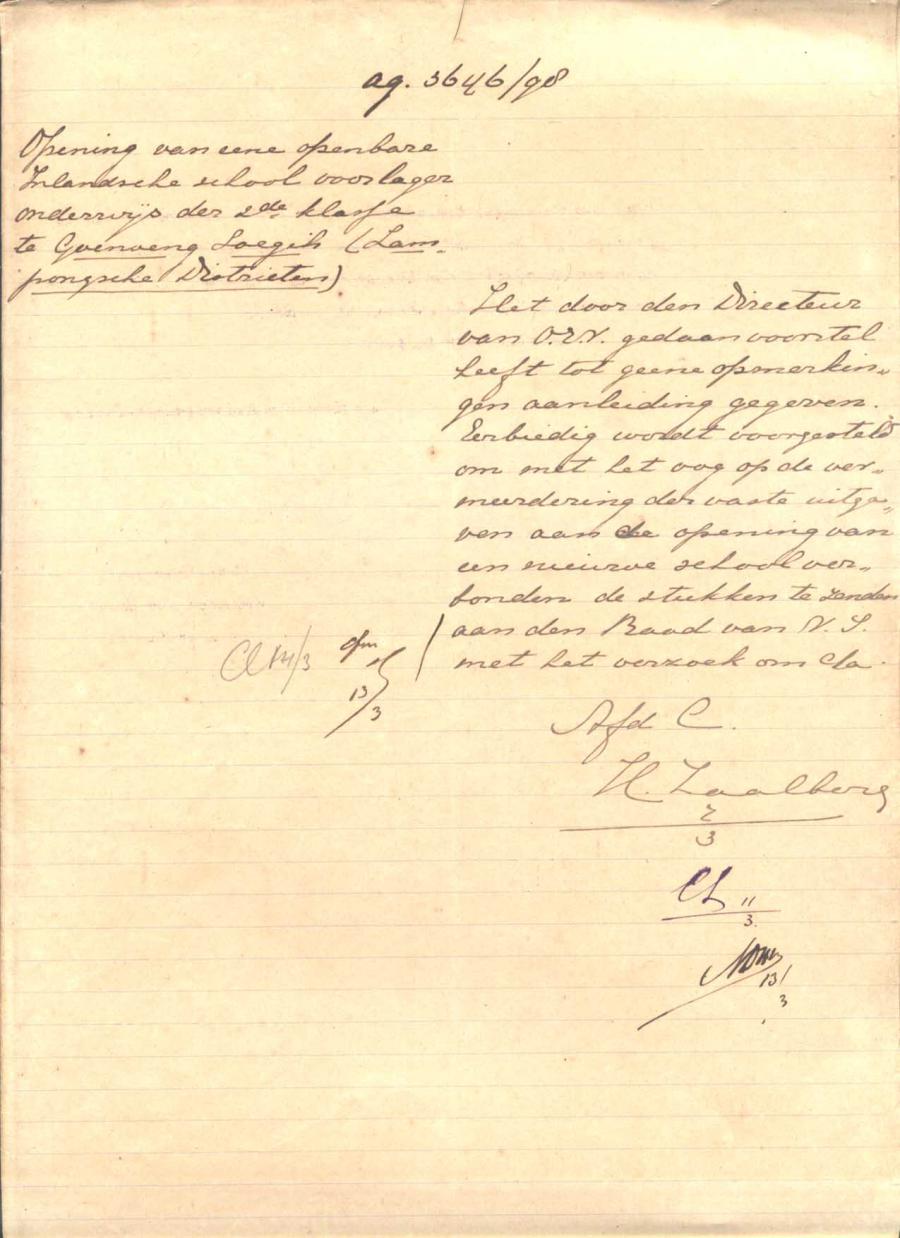 ag. 3646/98
Opening van eene openbare
Inlandsche school voor lager
onderwijs der 2de klasse
te Goenoeng Soegih (Lam-
pongsche Districten)
Het door den Directeur
van O.E.N. gedaan voorstel
heeft tot geene opmerkin-
gen aanleiding gegeven.
Eerbiedig wordt voorgesteld
om met het oog op de ver-
meerdering der vaste uitga-
ven aan de opening van
een nieuwe school ver-
bonden de stukken te zenden
aan den Raad van N. I.
met het verzoek om Cla.
Cl 14/3
13/3
Afd C.
H. Zaalberg
7
3
CL 11
3
13/
3